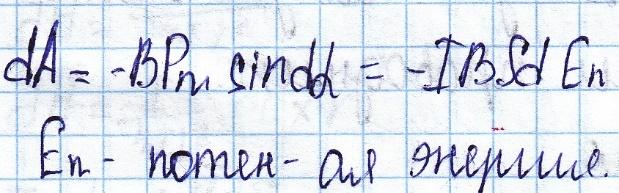 dA = -BPm sin dα = -IBSd En
En - потен-ая энергия.